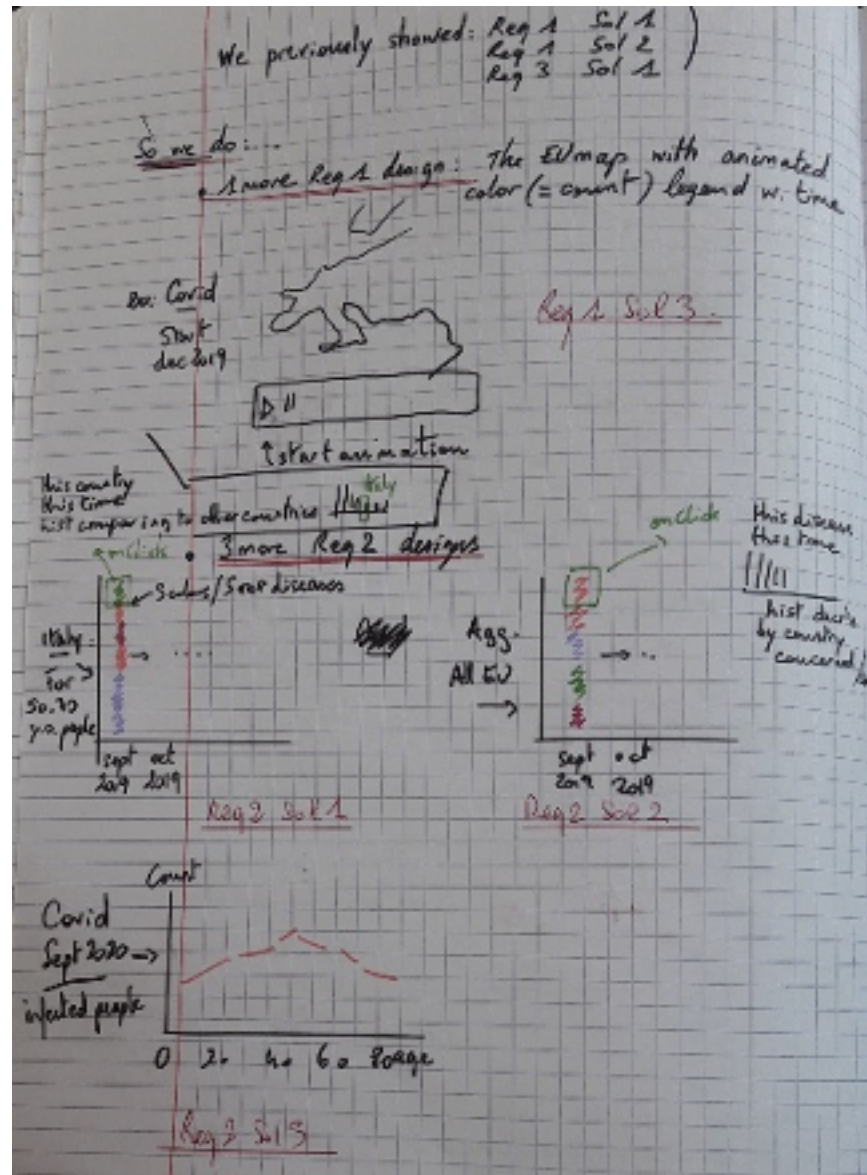 We previously showed: Req 1 Sol 1
Req 1 Sol 2
Req 3 Sol 1
So we do:...
• 1 more Req 1 design: The EU map with animated
color (= count) legend w. time
ex: Covid
Start
dec 2019
Req 1 Sol 3
↑ start animation
this country
this time
hist comparing to other countries
Italy
• 3 more Req 2 designs
onClick
diseases
Italy
for
50.70
y.o. people
sept oct
2019 2019
Req 2 Sol 1
onClick
this disease
this time
hist
by country
concerned
Agg.
All EU
sept oct
2019 2019
Req 2 Sol 2
Count
Covid
Sept 2020 →
infected people
0 20 40 60 80 age
Req 2 Sol 3